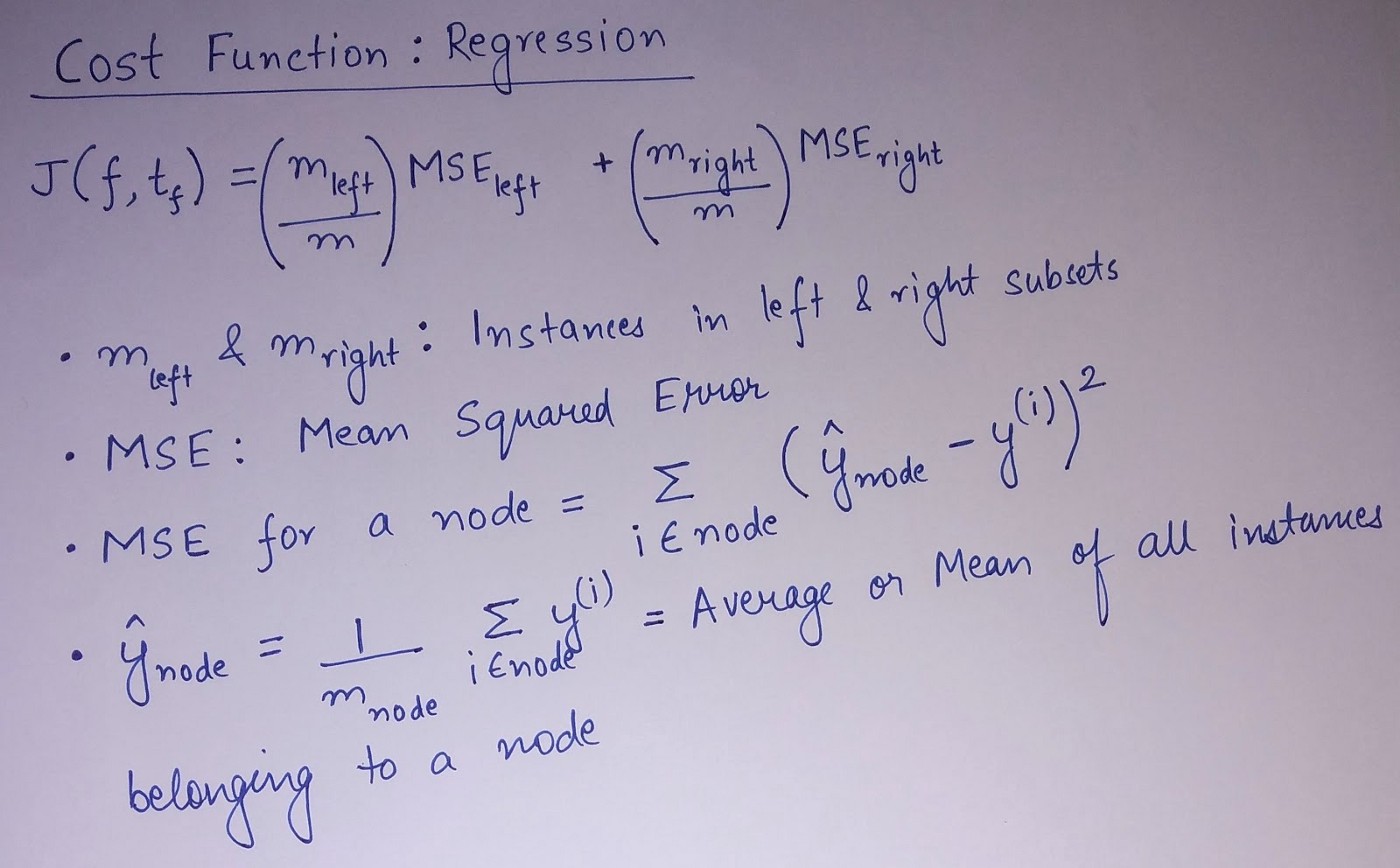 Cost Function : Regression
J(f, t_f) = (m_left / m) MSE_left + (m_right / m) MSE_right
• m_left & m_right : Instances in left & right subsets
• MSE : Mean Squared Error
• MSE for a node = Σ_{i ∈ node} (ŷ_node - y^(i))^2
• ŷ_node = 1 / m_node Σ_{i ∈ node} y^(i) = Average or Mean of all instances
belonging to a node